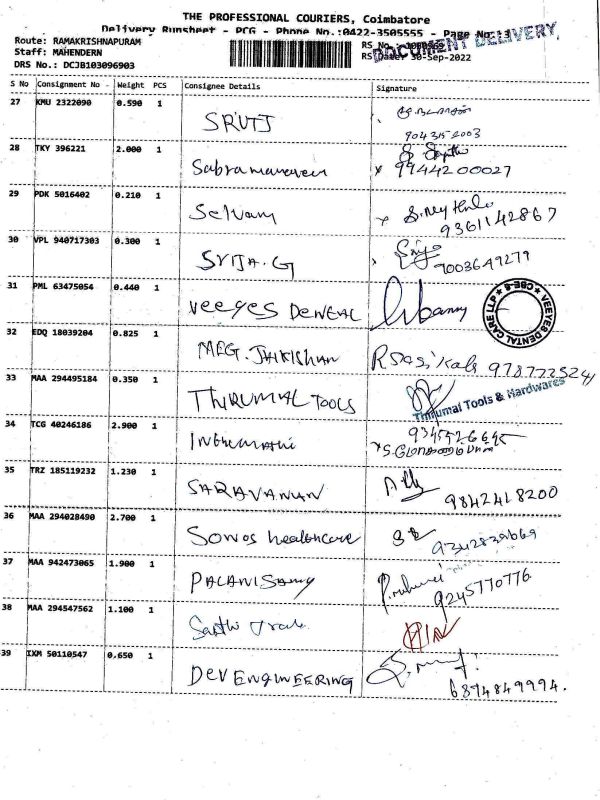 THE PROFESSIONAL COURIERS, Coimbatore
Delivery Runsheet - PCG - Phone No.:0422-3505555 - Page No.:3
DOCUMENT DELIVERY
Route: RAMAKRISHNAPURAM
Staff: MAHENDERN
DRS No.: DCJB103096903
RS No.
RS Date: 30-Sep-2022
S No Consignment No Weight PCS Consignee Details Signature
27 KMU 2322090 0.590 1 SRUTJ
9043152003
28 TKY 396221 2.000 1 Sabramanaveen
x 9944200027
29 PDK 5016402 0.210 1 Selvam
9361142867
30 VPL 940717303 0.300 1 SRIJA.G
7003649279
31 PML 63475054 0.440 1 veeyes DENTAL
VEEYES DENTAL CARE LLP ★ CBE-6 ★
32 EDQ 18039204 0.825 1 MEG. JAIKISHAN R Sasikala
33 MAA 294495184 0.350 1 THIRUMAL TOOLS
Thirumal Tools & Hardwares
34 TCG 40246186 2.900 1
35 TRZ 185119232 1.230 1 SARAVANAN
9842418200
36 MAA 294028490 2.700 1 Sonos healthcare
9342839669
37 MAA 942473065 1.900 1 PALANISamy
9245770776
38 MAA 294547562 1.100 1
39 IXM 50110547 0.650 1 DEV ENGINEERING
6874849994.